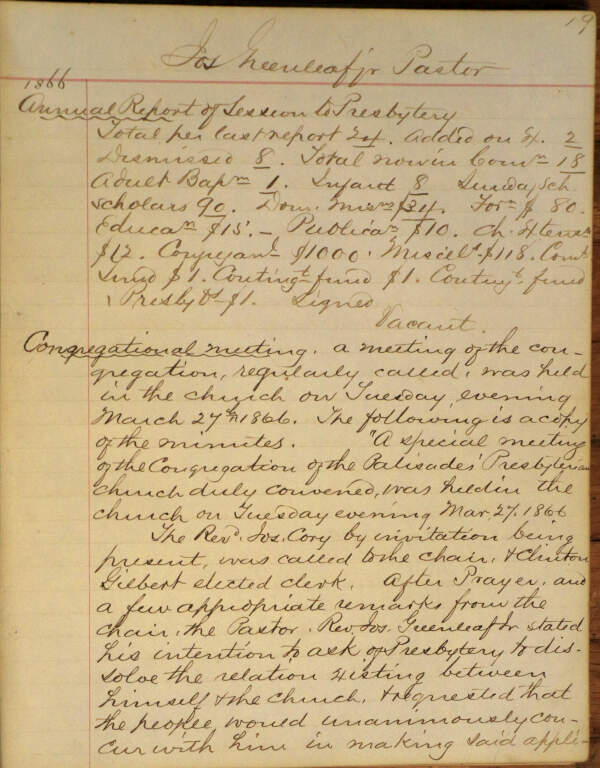 19
Jos Greenleaf jr Pastor
1866
Annual Report of Session to Presbytery
Total per last report 24. Added on Ex. 2
Dismissed 8. Total now in Comn 18
Adult Bapm 1. Infant 8 Sunday Sch
Scholars 90. Dom. Misns $34. Forn $ 80.
Educan $15.- Publican $10. Ch. Extensn
$12. Congregan $1000. Miscels $118. Comt
fund $1. Contingt fund $1. Contingt fund
Presbyt $1. Signed
Vacant.
Congregational meeting. a meeting of the con-
gregation, regularly called, was held
in the church on Tuesday evening
March 27th 1866. The following is a copy
of the minutes. "A special meeting
of the Congregation of the Palisades Presbyterian
church duly convened, was held in the
church on Tuesday evening Mar. 27. 1866
The Revd. Jos. Cory by invitation being
present, was called to the chair, & Clinton
Gilbert elected clerk. After Prayer, and
a few appropriate remarks from the
chair, the Pastor, Rev. Jos. Greenleaf Jr stated
his intention to ask of Presbytery to dis-
solve the relation existing between
himself & the church, & requested that
the people would unanimously con-
cur with him in making said appli-